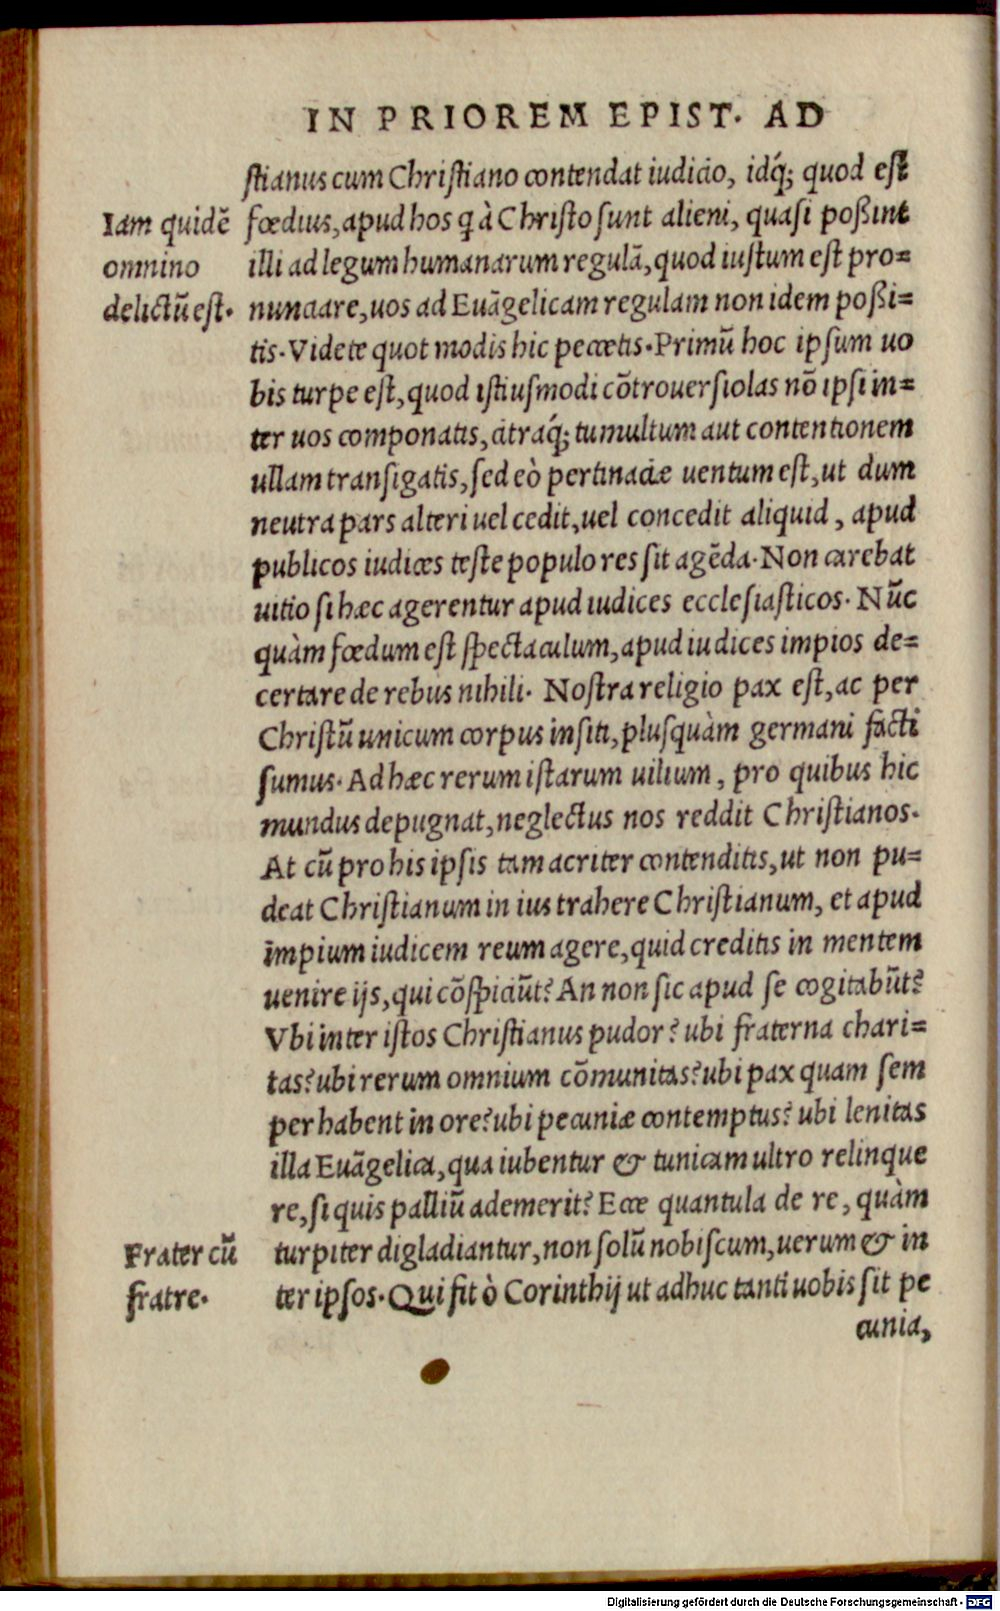 IN PRIOREM EPIST. AD
ſtianus cum Chriſtiano contendat iudicio, idq́; quod eſt
Iam quidē
omnino
delictū eſt.
fœdius, apud hos q̃ à Chriſto ſunt alieni, quaſi poßint
illi ad legum humanarum regulā, quod iuſtum eſt pro=
nunciare, uos ad Euāgelicam regulam non idem poßi=
tis. Videte quot modis hic peccetis. Primū hoc ipſum uo
bis turpe eſt, quod iſtiuſmodi cōtrouerſiolas nō ipſi in=
ter uos componatis, citraq́; tumultum aut contentionem
ullam tranſigatis, ſed eò pertinaciæ uentum eſt, ut dum
neutra pars alteri uel cedit, uel concedit aliquid, apud
publicos iudices teſte populo res ſit agēda. Non carebat
uitio ſi hæc agerentur apud iudices eccleſiaſticos. Nūc
quàm fœdum eſt ſpectaculum, apud iudices impios de=
certare de rebus nihili. Noſtra religio pax eſt, ac per
Chriſtū unicum corpus inſiti, pluſquàm germani facti
ſumus. Ad hæc rerum iſtarum uilium, pro quibus hic
mundus depugnat, neglectus nos reddit Chriſtianos.
At cū pro his ipſis tam acriter contenditis, ut non pu=
deat Chriſtianum in ius trahere Chriſtianum, et apud
impium iudicem reum agere, quid creditis in mentem
uenire ijs, qui cōſpiciūt? An non ſic apud ſe cogitabūt?
Vbi inter iſtos Chriſtianus pudor? ubi fraterna chari=
tas? ubi rerum omnium cōmunitas? ubi pax quam ſem
per habent in ore? ubi pecuniæ contemptus? ubi lenitas
illa Euāgelica, qua iubentur & tunicam ultro relinque
re, ſi quis palliū ademerit? Ecce quantula de re, quàm
Frater cū
fratre.
turpiter digladiantur, non ſolū nobiſcum, uerum & in
ter ipſos. Qui fit ò Corinthij ut adhuc tanti uobis ſit pe
cunia,
Digitalisierung gefördert durch die Deutsche Forschungsgemeinschaft - DFG